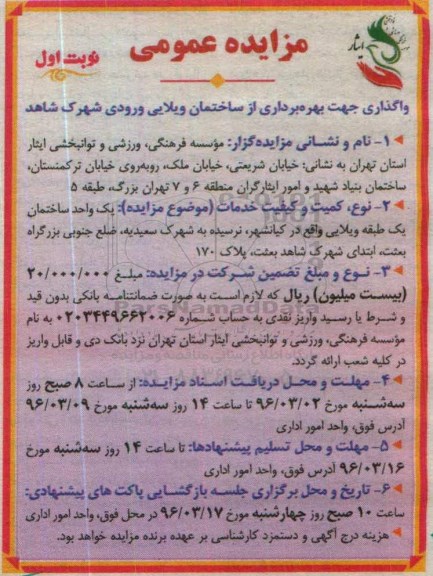 ایثار
مزایده عمومی
نوبت اول
واگذاری جهت بهره‌برداری از ساختمان ویلایی ورودی شهرک شاهد
۱- نام و نشانی مزایده‌گزار: مؤسسه فرهنگی، ورزشی و توانبخشی ایثار
استان تهران به نشانی: خیابان شریعتی، خیابان ملک، روبه‌روی خیابان ترکمنستان،
ساختمان بنیاد شهید و امور ایثارگران منطقه ۶ و ۷ تهران بزرگ، طبقه ۵
۲- نوع، کمیت و کیفیت خدمات (موضوع مزایده): یک واحد ساختمان
یک طبقه ویلایی واقع در کیانشهر، نرسیده به شهرک سعیدیه، ضلع جنوبی بزرگراه
بعثت، ابتدای شهرک شاهد بعثت، پلاک ۱۷۰
۳- نوع و مبلغ تضمین شرکت در مزایده: مبلغ ۲۰/۰۰۰/۰۰۰
(بیست میلیون) ریال که لازم است به صورت ضمانتنامه بانکی بدون قید
و شرط یا رسید واریز نقدی به حساب شماره ۰۲۰۳۴۴۹۶۶۲۰۰۶ به نام
مؤسسه فرهنگی، ورزشی و توانبخشی ایثار استان تهران نزد بانک دی و قابل واریز
در کلیه شعب ارائه گردد.
۴- مهلت و محل دریافت اسناد مزایده: از ساعت ۸ صبح روز
سه‌شنبه مورخ ۹۶/۰۳/۰۲ تا ساعت ۱۴ روز سه‌شنبه مورخ ۹۶/۰۳/۰۹
آدرس فوق، واحد امور اداری
۵- مهلت و محل تسلیم پیشنهادها: تا ساعت ۱۴ روز سه‌شنبه مورخ
۹۶/۰۳/۱۶ آدرس فوق، واحد امور اداری
۶- تاریخ و محل برگزاری جلسه بازگشایی پاکت های پیشنهادی:
ساعت ۱۰ صبح روز چهارشنبه مورخ ۹۶/۰۳/۱۷ در محل فوق، واحد امور اداری
هزینه درج آگهی و دستمزد کارشناسی بر عهده برنده مزایده خواهد بود.